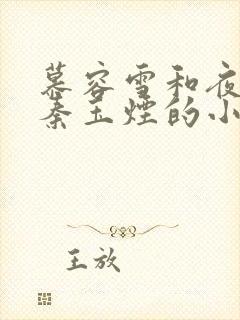 慕容雪和夜
秦玉煙的小
王放